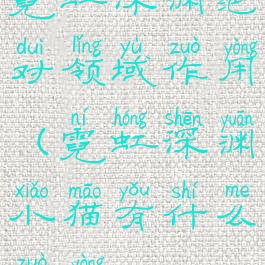 霓虹深渊绝
duì lǐng yù zuò yòng
对领域作用
ní hóng shēn yuān
(霓虹深渊
xiǎo māo yǒu shí me
小猫有什么
zuò yòng